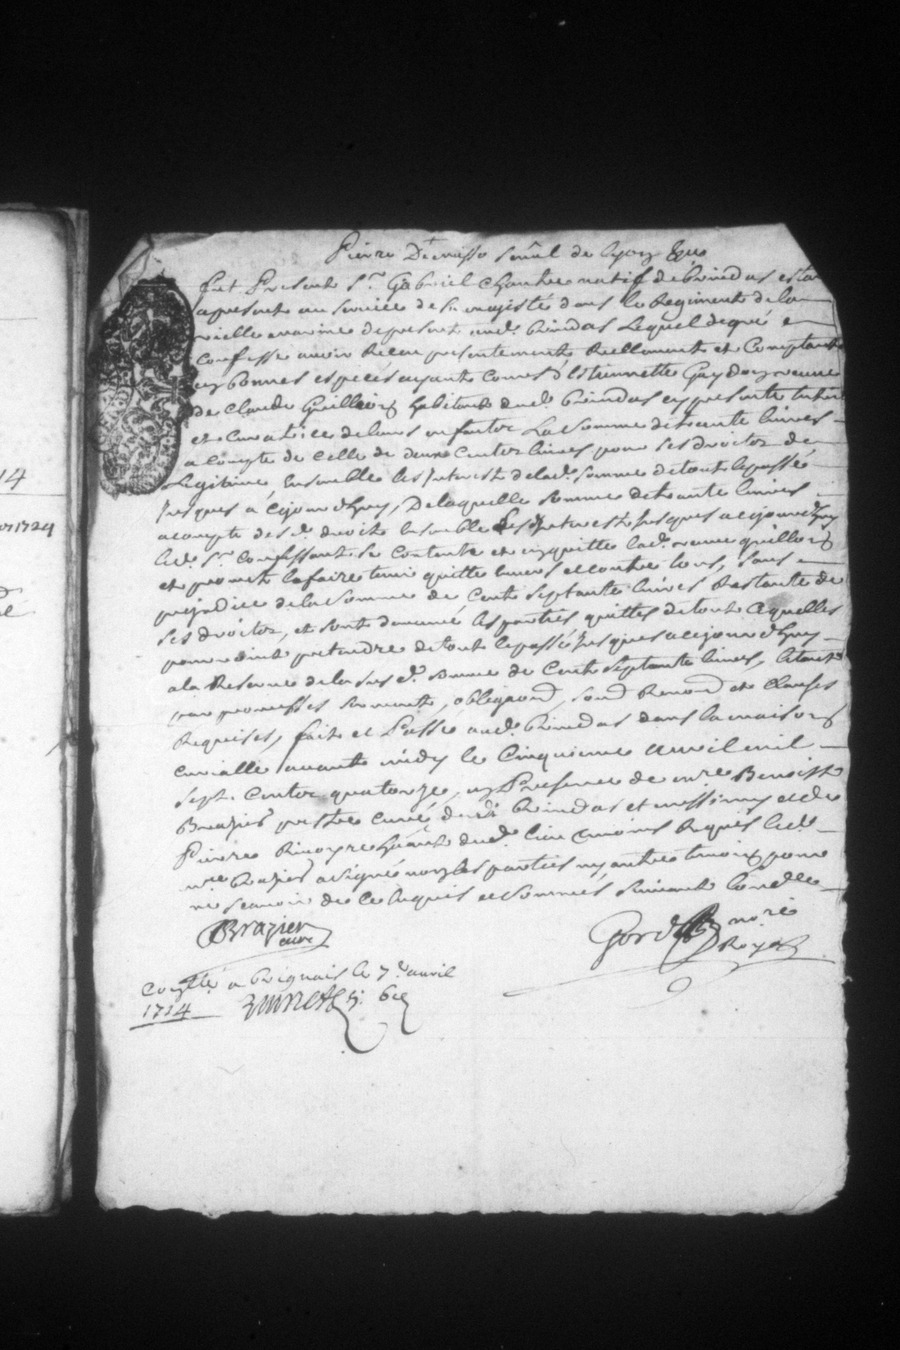 Pierre Dervasso senal de Lyon
fut Present Sr. Gabriel Chantre natif de brindas estant
a present au service de sa majesté dans le Regiment de la
vielle marine de present aud. brindas Lequel de gré
confesse avoir Receu presentement Reellement et Comptant
en bonnes especes ayant cours d'Estiennette Gaydon veuve
de Claude Guillon habitante dud. brindas cy presente tutrice
et curatrice de leurs enfants La Somme de trante livres
a compte de celle de deux cents livres pour ses droits de
Legitime ensemble les Interests de lad. somme de tout le passé
Jusques à cejourd'huy, De laquelle somme de trante livres
a compte desd. droits ensemble des Interests Jusques a cejourd'huy
led. Sr. confessant se contente et en quitte lad. veuve guillon
et promet la faire tenir quitte envers et contre tous, sans
prejudice de la Somme de Cent septante livres Restante de
ses droits, et sont demeuré les parties quittes de tout ce quelles
pourroient pretendre de tout le passé Jusques a cejourd'huy
a la Reserve de la susd. somme de Cent septante livres,
par promesses serment, obligeant, sond Renond et clauses
Requises, fait et Passé aud. brindas dans la maison
curialle avant midy le Cinquieme avril mil
sept Cents quatorze, en Presence de mre Benoist
Brazier prestre curé dud. brindas et messimy et de
Pierre Rivoyre dud. lieu temoins Requis led.
mre brazier a signé non les parties ny autre temoin pour
ne scavoir de ce Requis et sommés suivant l'ord.
Brazier
curé
Gord nore
Royal
Conllé a brignais le 7e. avril
1714